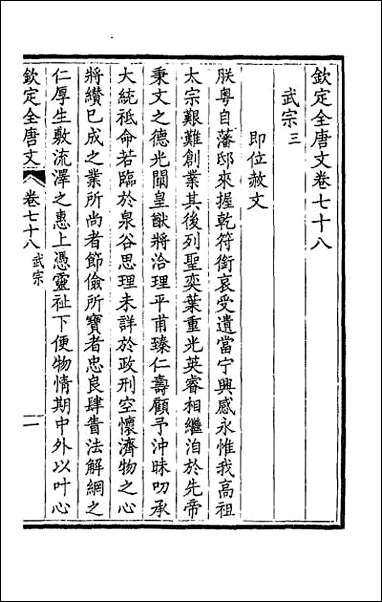 欽定全唐文卷七十八
武宗三
即位赦文
朕粵自藩邸來握乾符銜哀受遺當宁興感永惟我高祖
太宗艱難創業其後列聖奕葉重光英睿相繼洎於先帝
秉文之德光闡皇猷將洽理平甫臻仁壽顧予沖昧叨承
大統祗命若臨於泉谷思理未詳於政刑空懷濟物之心
將纘已成之業所尚者節儉所寶者忠良肆眚法解網之
仁厚生敷流澤之惠上憑靈祉下便物情期中外以叶心
欽定全唐文
卷七十八
武宗
一